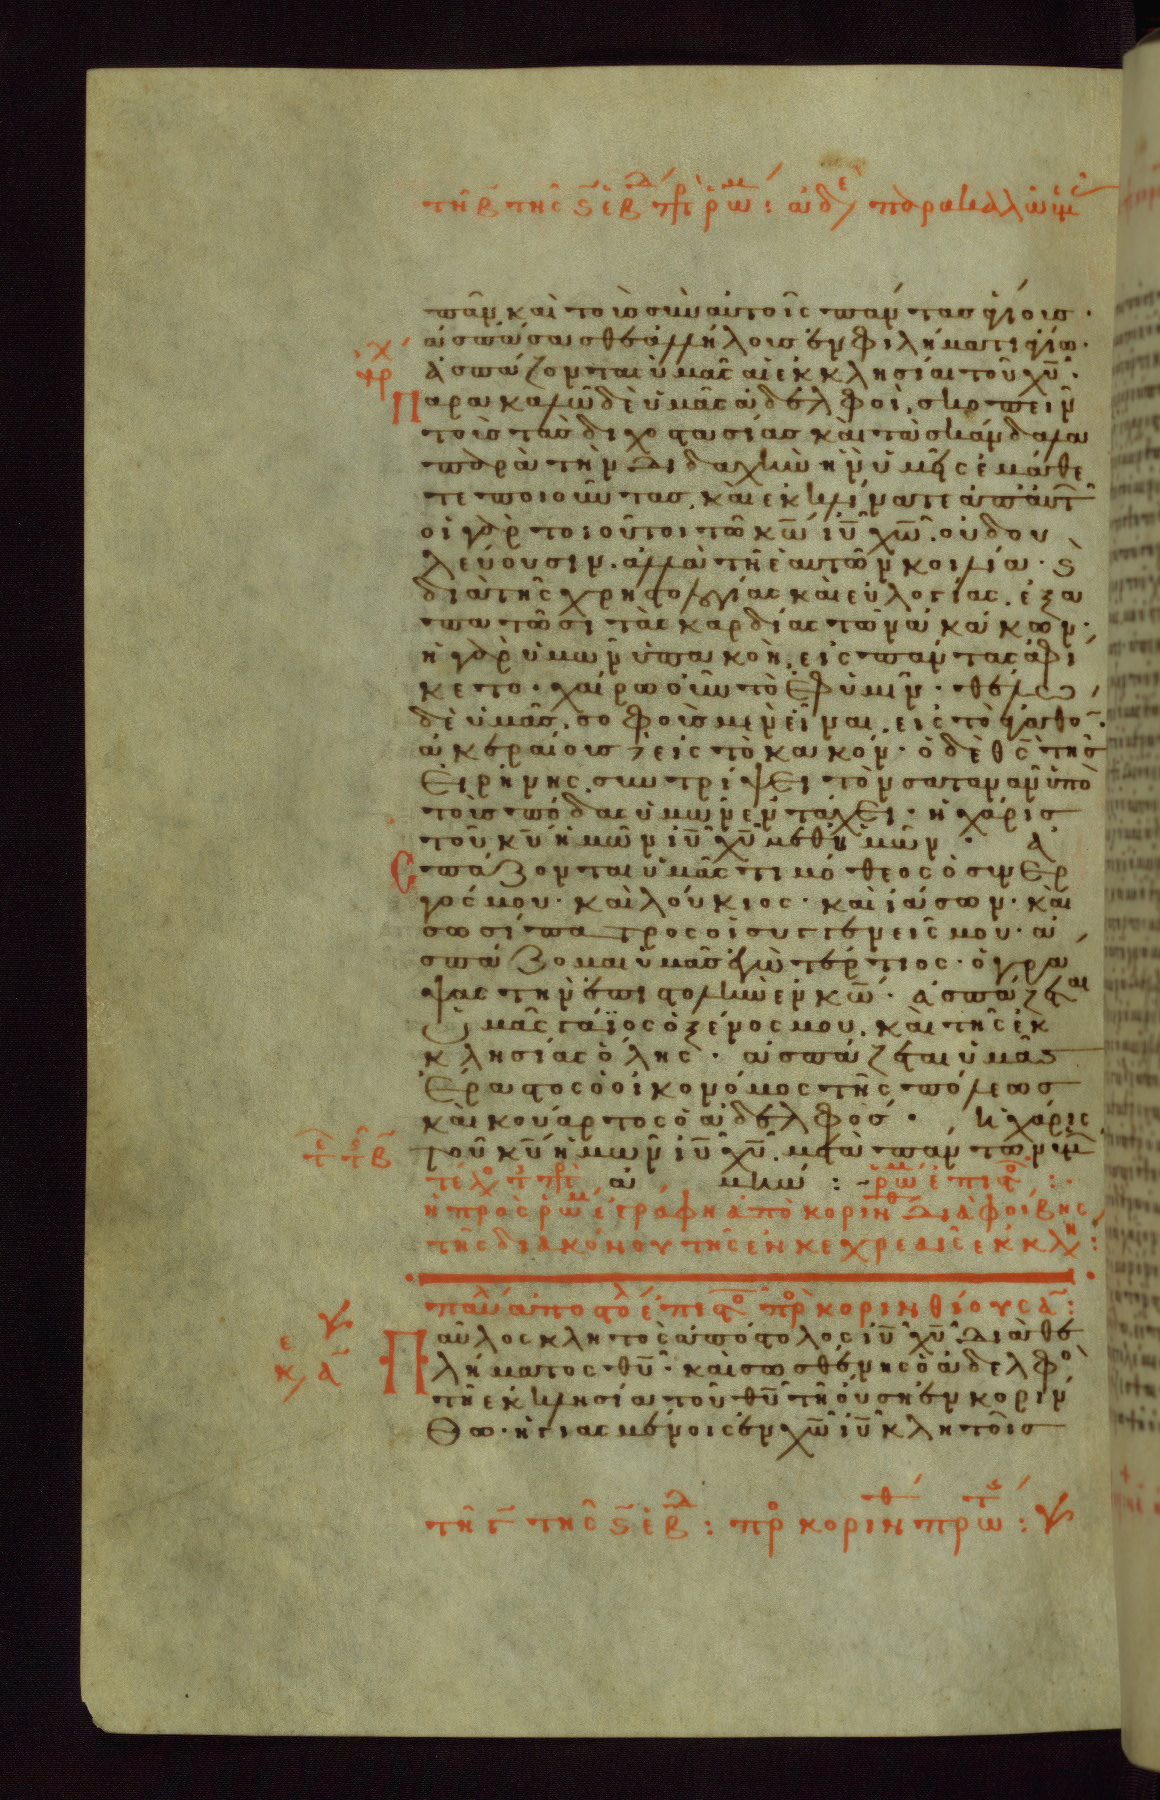 τῆ β τῆς ϛ ἑβδ πρ ῥωμ : ἀδε παρακαλῶ ὑμ
πᾶν καὶ τοὺσ σὺν αὐτοῖς πάντασ ἁγίουσ ·
ἀσπάσασθε ἀλλήλουσ ἐν φιλήματι ἁγίω ·
Ἀσπάζονται ὑμᾶς αἱ ἐκκλησίαι τοῦ χυ ·
Παρακαλῶ δὲ ὑμᾶς ἀδελφοὶ, σκοπεῖν
τοὺσ τὰσ διχοστασίασ καὶ τὰ σκάνδαλα
παρὰ τὴν διδαχὴν ἣν ὑμεῖς ἐμάθε
τε ποιοῦντασ, καὶ ἐκκλίνατε ἀπ' αὐτ
οἱ γὰρ τοιοῦτοι τῶ κω ιυ χω, οὐ δου
λεύουσιν. ἀλλὰ τῆ ἑαυτῶν κοιλία · ϗ
διὰ τῆς χρηστολογίας καὶ εὐλογίας, ἐξα
πατῶσι τὰς καρδίας τῶν ἀκάκων ·
ἡ γὰρ ὑμῶν ὑπακοὴ, εἰς πάντας ἀφί
κετο · χαίρω οὖν τὸ ἐφ' ὑμῖν · θέλω
δὲ ὑμᾶσ, σοφοὺσ μὲν εἶναι, εἰς τὸ ἀγαθὸ ·
ἀκεραίουσ δὲ εἰς τὸ κακόν · ὁ δὲ θς τῆσ
Εἰρήνης, συντρίψει τὸν σατανᾶν ὑπὸ
τοὺσ πόδας ὑμῶν ἐν τάχει · ἡ χάρισ
τοῦ κυ ἡμῶν ιυ χυ μεθ' ὑμῶν · Ἀ
Σπάζονται ὑμᾶς τιμόθεος ὁ συνερ
γός μου · καὶ λούκιος · καὶ ἰάσων · καὶ
σωσίπατρος οἱ συγγενεῖς μου · ἀ
σπάζομαι ὑμᾶσ ἐγὼ τέρτιος · ὁ γρά
ψας τὴν ἐπιστολὴν ἐν κω · Ἀσπάζεται
Ὑμᾶς γάϊος ὁ ξένος μου, καὶ τῆς ἐκ
κλησίας ὅλης · ἀσπάζεται ὑμᾶσ
Ἔραστος ὁ οἰκονόμος τῆς πόλεωσ
καὶ κούαρτος ὁ ἀδελφόσ · Ἡ χάρις
τοῦ κυ ἡμῶν ιυ χυ, μετὰ πάντων ὑμ
ἀμήν : ῥωμ ἐπιστο :
ἡ πρὸς ῥωμ ἐγράφη ἀπὸ κορινθ διὰ φοίβης
τῆς διακόνου τῆς ἐν κεχρεαῖς ἐκκλη :
παύλ ἀποστόλ ἐπιστο πρὸ κορινθίους α :
Παῦλος κλητὸς ἀπόστολος ιυ χυ διὰ θε
λήματος θυ · καὶ σωσθένης ὁ ἀδελφὸ
τῆ ἐκκλησία τοῦ θυ τῆ οὔση ἐν κοριν
Θω · ἡγιασμένοις ἐν χω ιυ κλητοῖσ
τῆ γ τῆς ϛ ἑβδ : πρὸ κορινθ πρωτ :